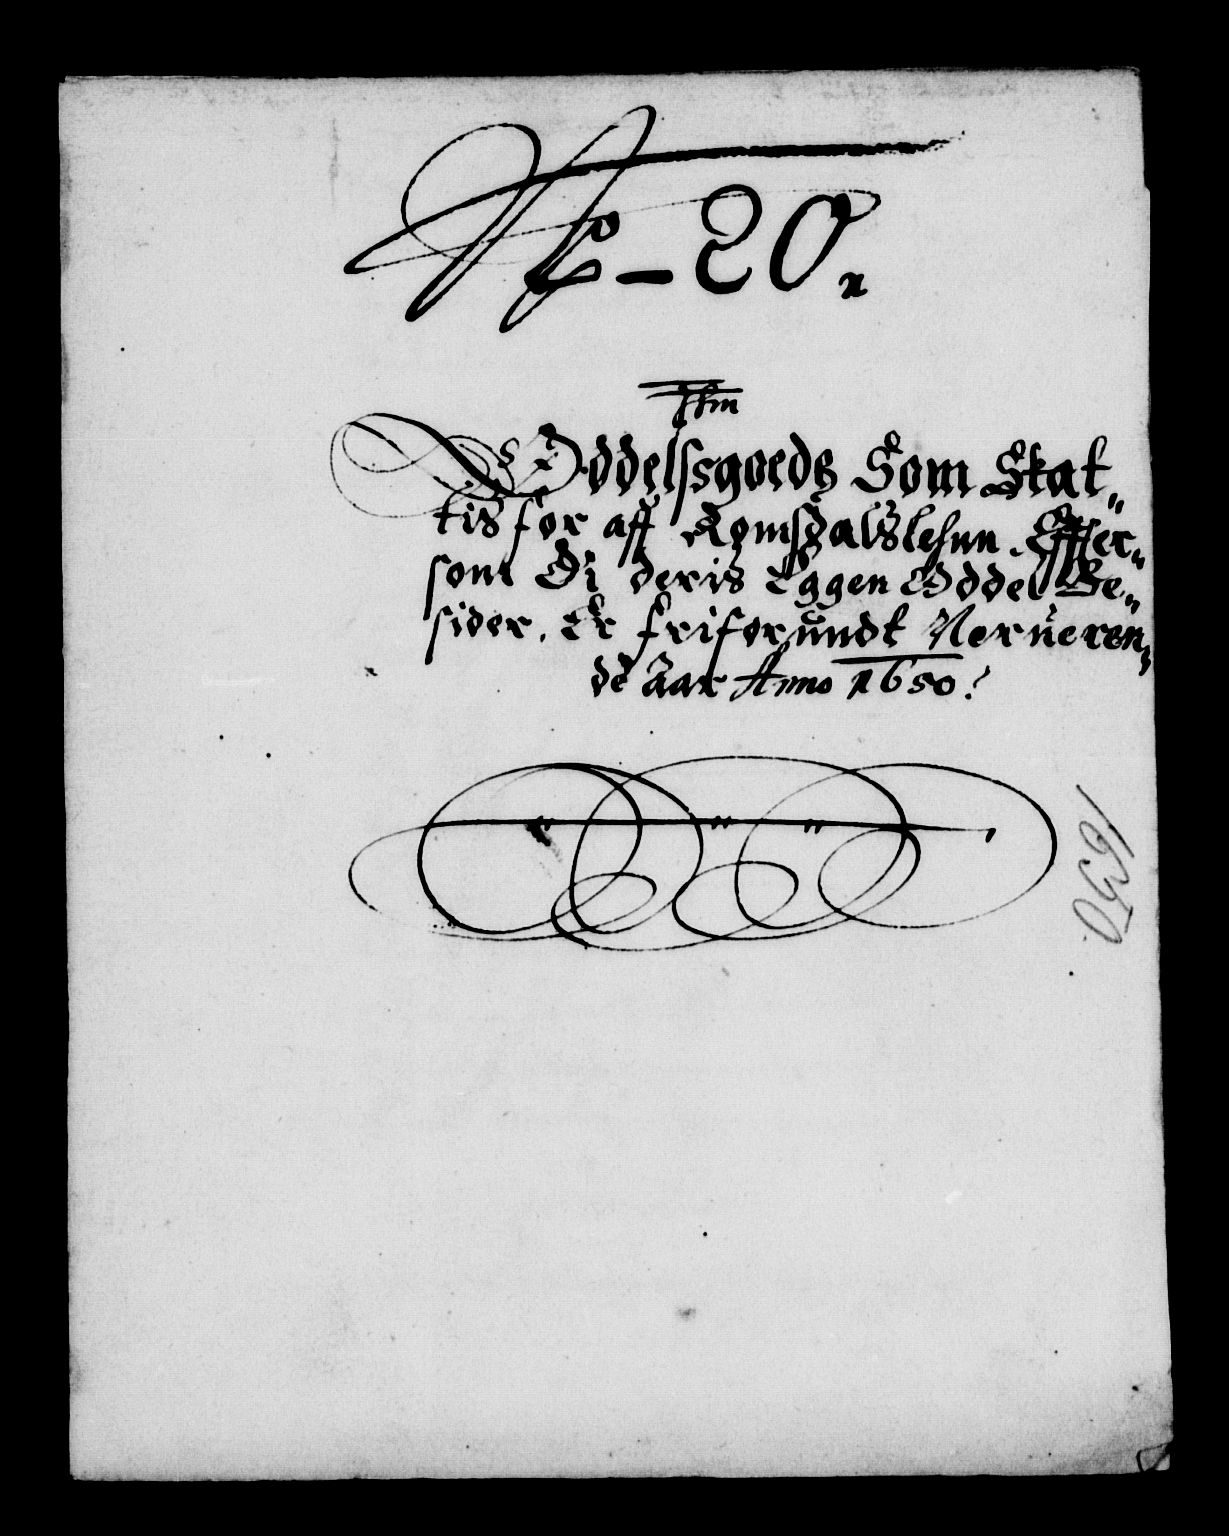 No_20.
Ds Oddelssgoeds Som Skat„
tis for aff Romsdalslehnn. Effter„
som Di deris Eggen Oddel Be„
sider. Er friforundt Nerueren„
de Aar Anno 1650.
1650